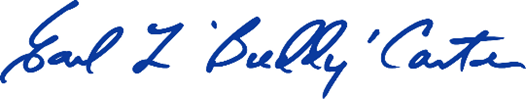 Earl L "Buddy" Carter